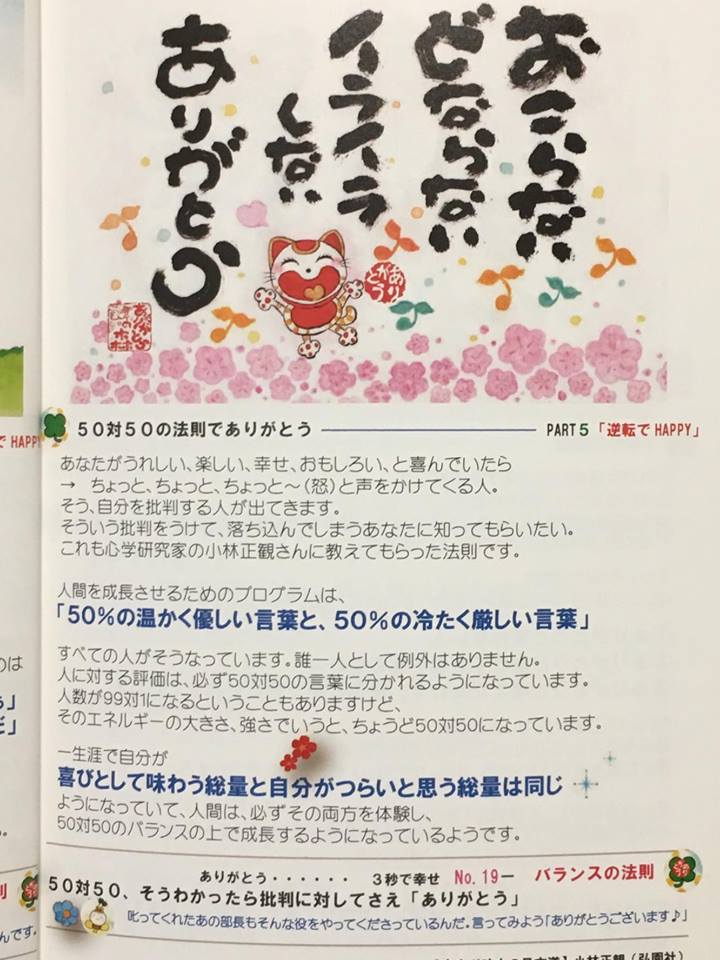 おこらない
どならない
イライラ
しない
ありがとう
ありがとう
で HAPPY
50対50の法則でありがとう
PART5「逆転でHAPPY」
あなたがうれしい、楽しい、幸せ、おもしろい、と喜んでいたら
→ ちょっと、ちょっと、ちょっと～(怒)と声をかけてくる人。
そう、自分を批判する人が出てきます。
そういう批判をうけて、落ち込んでしまうあなたに知ってもらいたい。
これも心学研究家の小林正観さんに教えてもらった法則です。
人間を成長させるためのプログラムは、
「50%の温かく優しい言葉と、50%の冷たく厳しい言葉」
すべての人がそうなっています。誰一人として例外はありません。
人に対する評価は、必ず50対50の言葉に分かれるようになっています。
人数が99対1になるということもありますけど、
そのエネルギーの大きさ、強さでいうと、ちょうど50対50になっています。
一生涯で自分が
喜びとして味わう総量と自分がつらいと思う総量は同じ
ようになっていて、人間は、必ずその両方を体験し、
50対50のバランスの上で成長するようになっているようです。
ありがとう・・・・・・ 3秒で幸せ No.19ー バランスの法則
50対50、そうわかったら批判に対してさえ「ありがとう」
叱ってくれたあの部長もそんな役をやってくださっているんだ。言ってみよう「ありがとうございます♪」
のは
」
だ」
。
則
んです。
小林正観(弘園社)